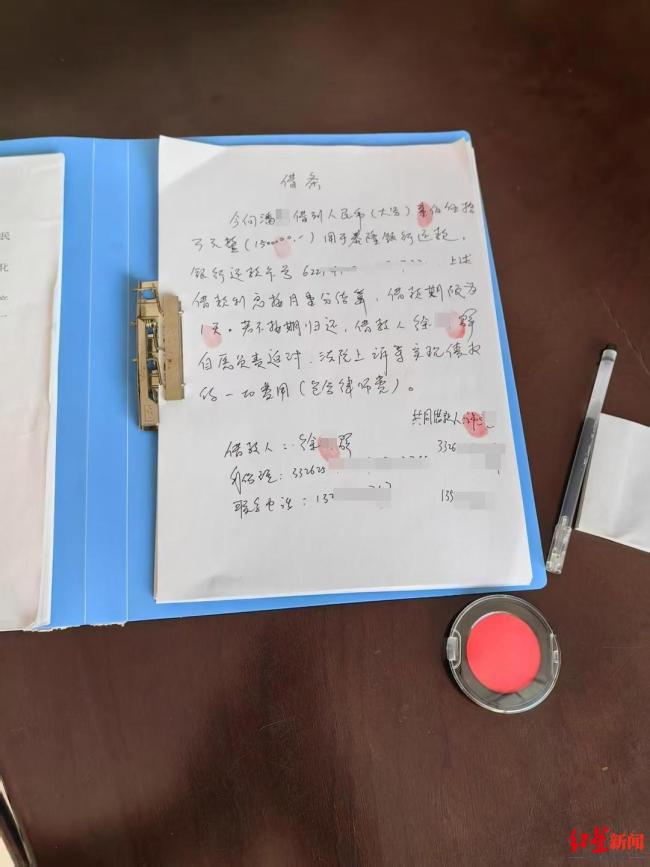 借条
今向潘 借到人民币（大写）壹佰伍拾
万元整（1500000.-）用于泰隆银行还款，
银行还款卡号 6221 上述
借款利息按月 分结算，借款期限为
1天。若不按期归还，借款人徐
自愿负责 法院上诉等实现债权
的一切费用（包含律师费）。
共同借款人：
借款人：徐
3326
身份证：332625
联系电话：137
135
民
化
红星新闻